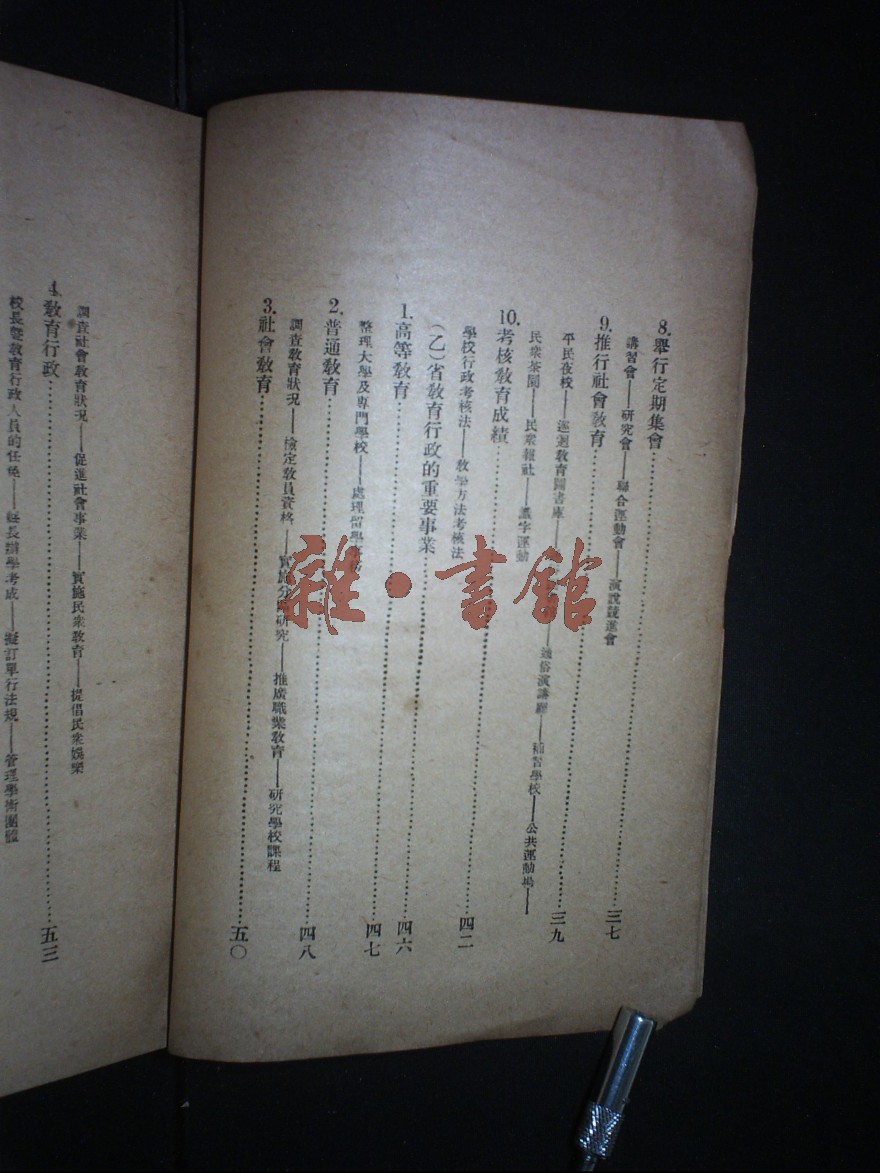 8.舉行定期集會……三七
講習會——研究會——聯合運動會——演說競進會
9.推行社會教育……三九
平民夜校——巡迴教育圖書庫——通俗演講廳——補習學校——公共運動場——
民衆茶園——民衆報社——識字運動
10.考核教育成績……四二
學校行政考核法——教學方法考核法
(乙)省教育行政的重要事業……四六
1.高等教育……四七
整理大學及專門學校——處理留學
2.普通教育……四八
調查教育狀況——檢定教員資格——實施分區研究——推廣職業教育——研究學校課程
3.社會教育……五〇
調查社會教育狀況——促進社會事業——實施民衆教育——提倡民衆娛樂
4.教育行政……五三
校長暨教育行政人員的任免——縣長辦學考成——擬訂單行法規——管理學術團體
雜·書館